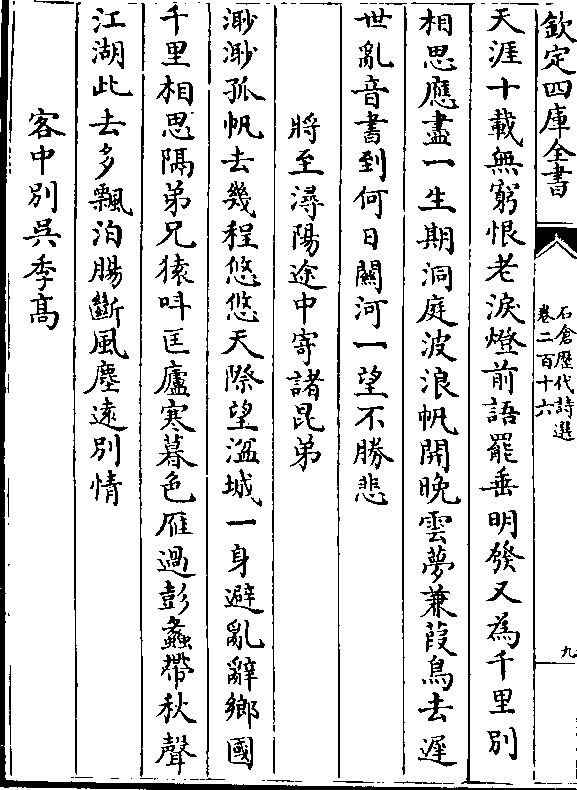 欽定四庫全書
石倉歷代詩選
卷二百十六
九
天涯十載無窮恨老淚燈前語罷垂明發又為千里別
相思應盡一生期洞庭波浪帆開晚雲夢蒹葭鳥去遲
世亂音書到何日關河一望不勝悲
將至潯陽途中寄諸昆弟
渺渺孤帆去幾程悠悠天際望湓城一身避亂辭鄉國
千里相思隔弟兄猿呌匡廬寒暮色雁過彭蠡帶秋聲
江湖此去多飄泊腸斷風塵遠別情
客中別吳季高